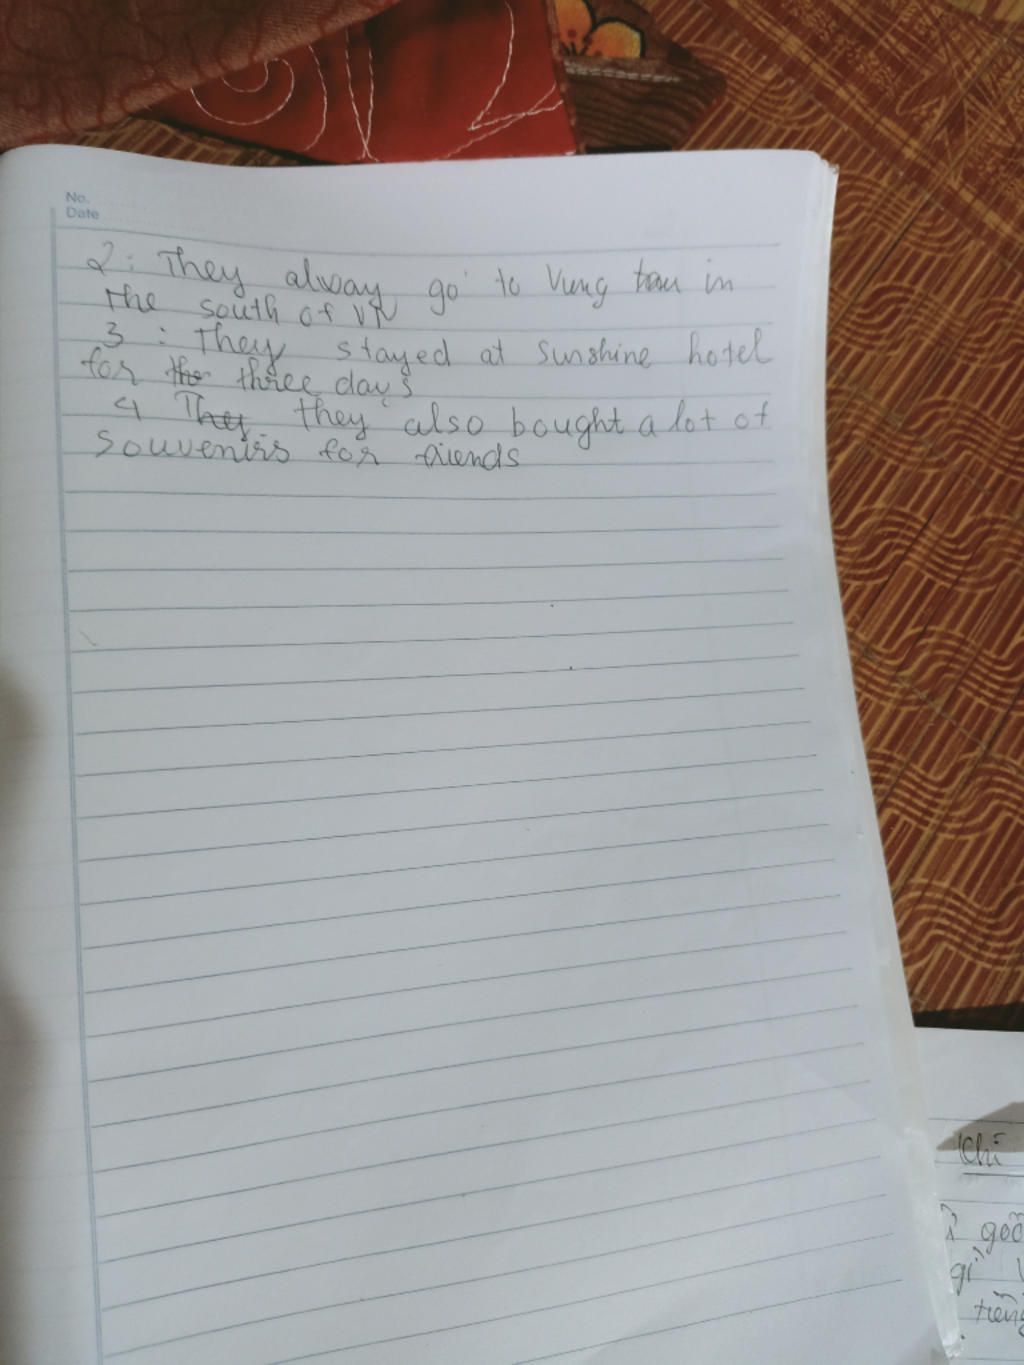 No.
Date
2: They alway go to Vung tau in
the south of VN
3: They stayed at sunshine hotel
for the three days
4 They they also bought a lot of
souvenirs for friends
Khi
gi
tiếng